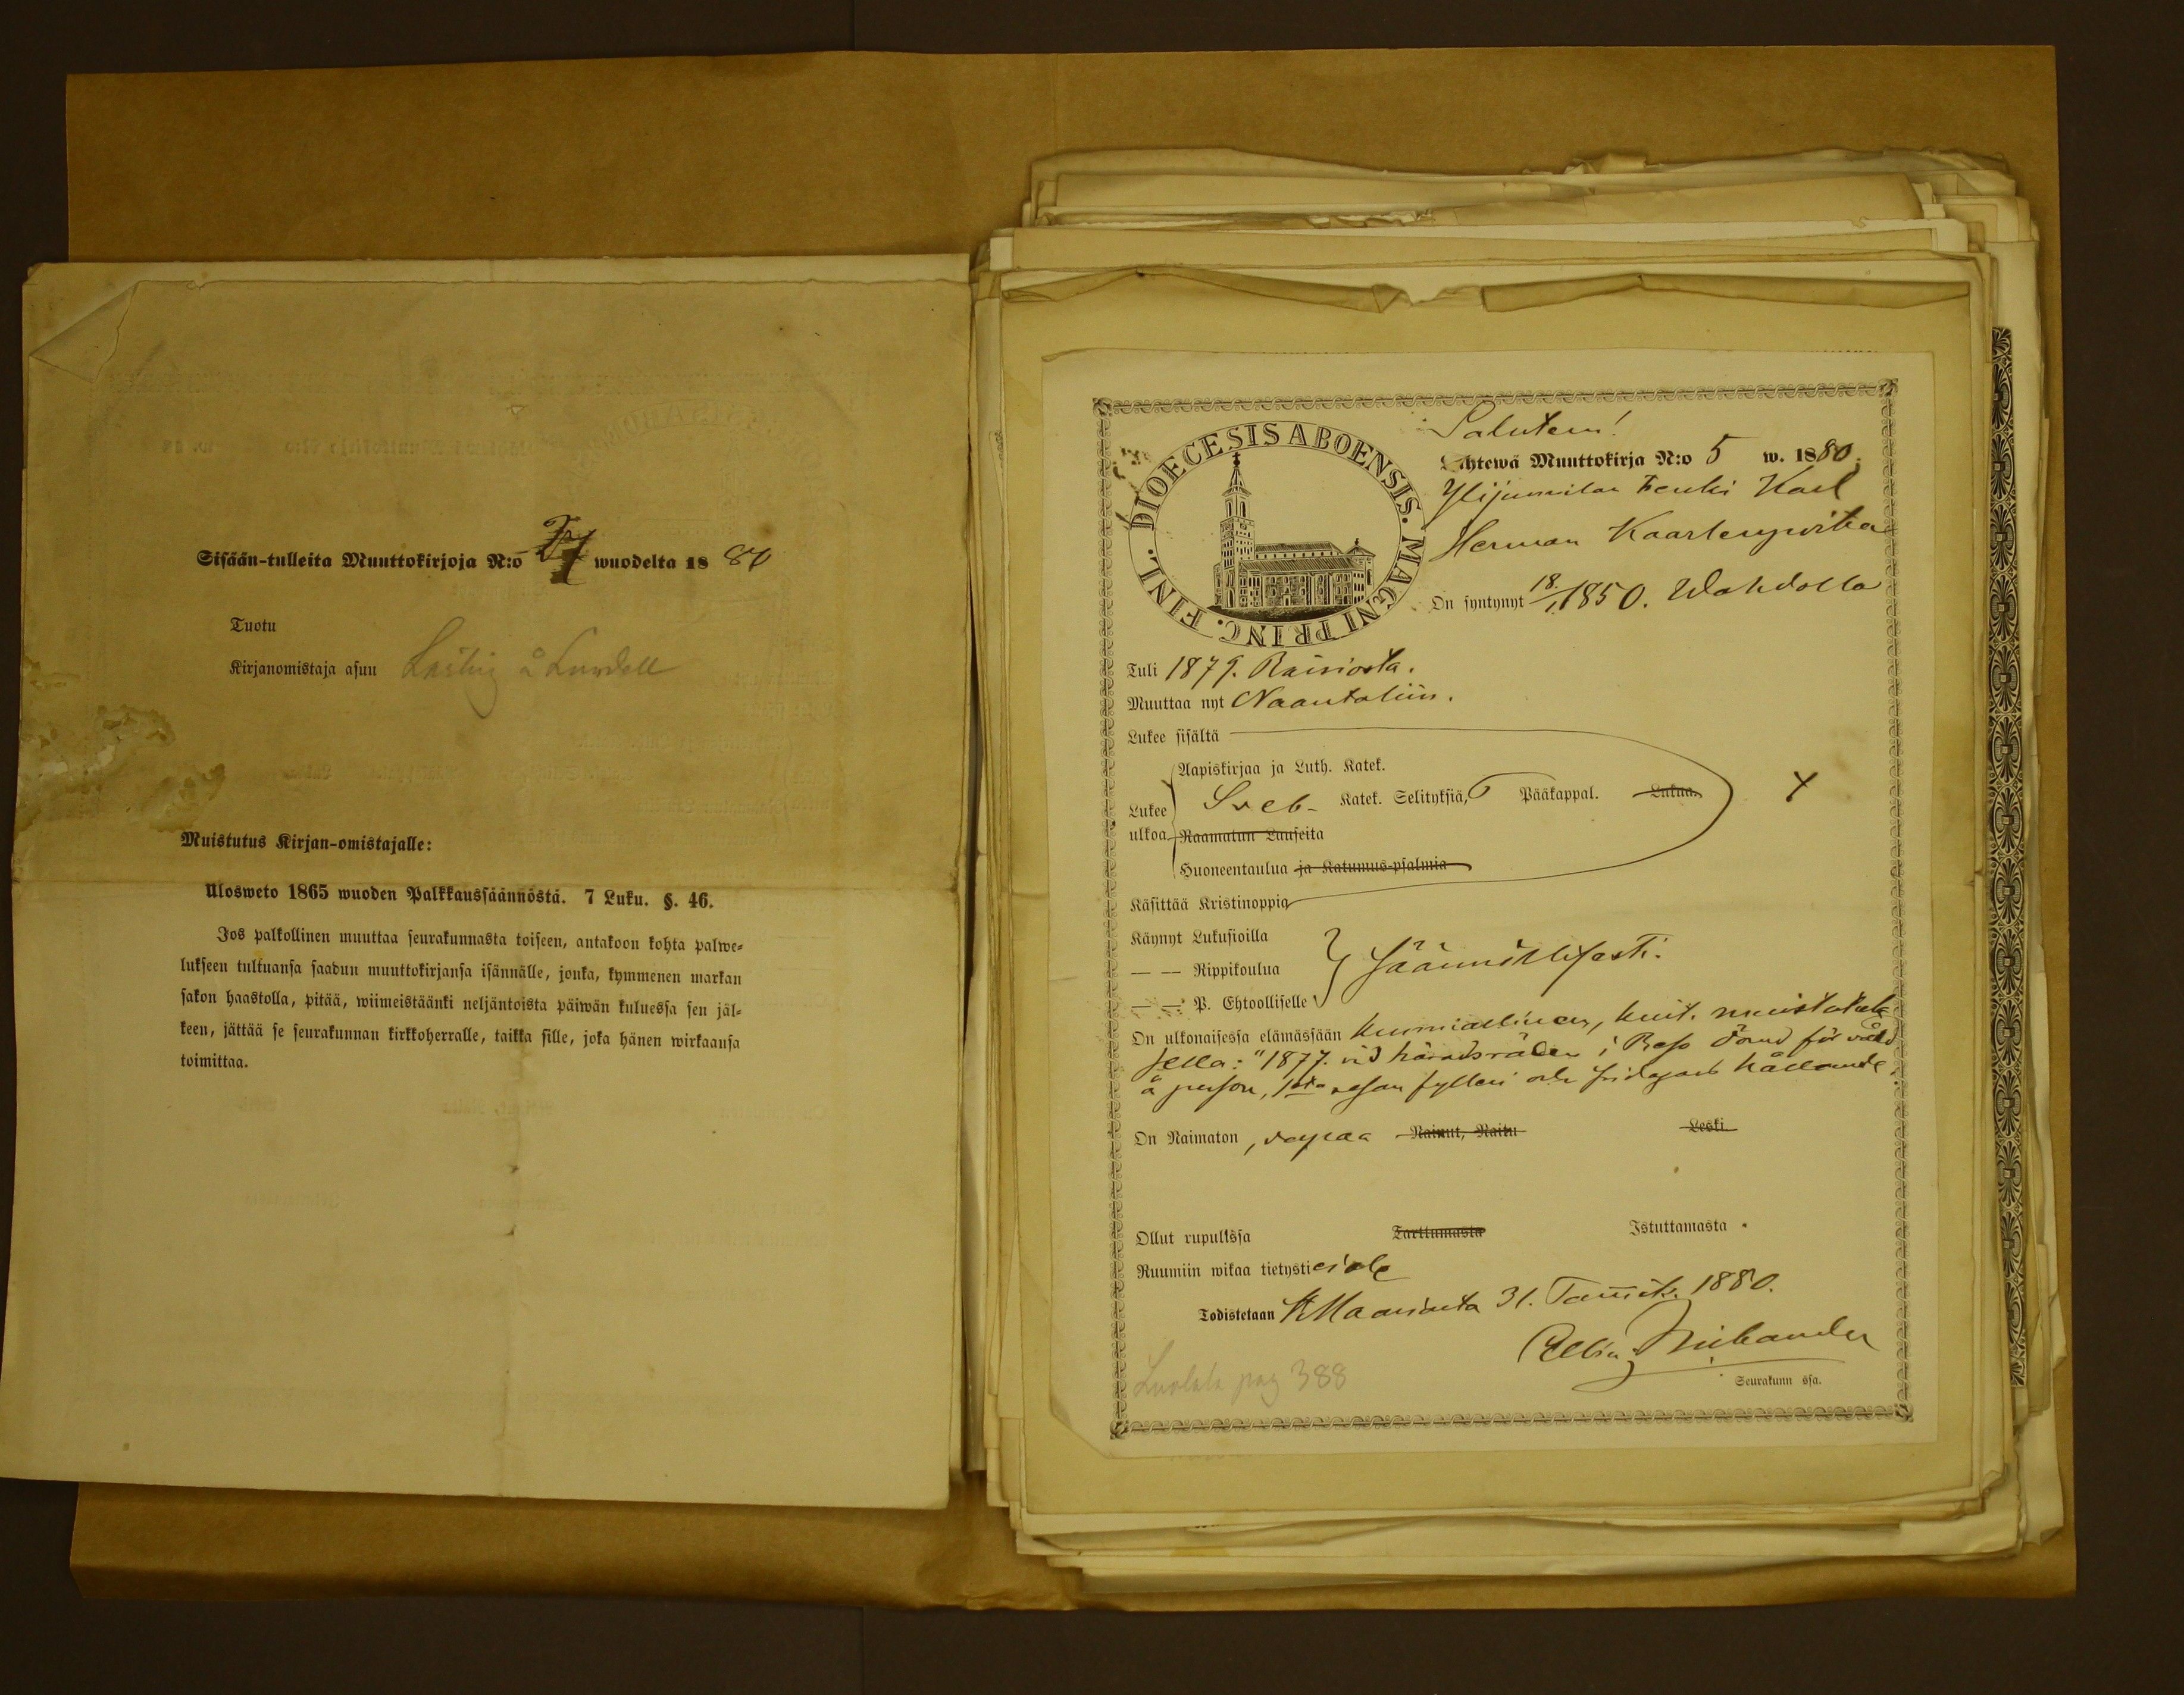 Sisään-tulleita Muuttokirjoja N:o wuodelta 1880
Tuotu
Kirjanomistaja asuu å Lurdell
Muistutus Kirjan-omistajalle:
Ulosweto 1865 wuoden Palkkaussäännöstä. 7 Luku. §. 46.
Jos palkollinen muuttaa seurakunnasta toiseen, antakoon kohta palwe-
lukseen tultuansa saadun muuttokirjansa isännälle, jonka, kymmenen markan
sakon haastolla, pitää, wiimeistäänki neljäntoista päiwän kuluessa sen jäl-
keen, jättää se seurakunnan kirkkoherralle, taikka sille, joka hänen wirkaansa
toimittaa.
DIOECESIS ABOENSIS. MAGNI PRINC. FINL.
Salutem!
Lähtewä Muuttokirja N:o 5 w. 1880.
Karl
Herman Kaarlenpoika
On syntynyt 18/1 1850. Wahdolla
Tuli 1879. Raisiosta.
Muuttaa nyt Naantaliin.
Lukee sisältä
Aapiskirjaa ja Luth. Katek.
Lukee Sveb- Katek. Selityksiä, Pääkappal. Lukua.
ulkoa Raamatun Lauseita
Huoneentaulua ja Katumus-psalmia
Käsittää Kristinoppia
Käynyt Lukusioilla
— — Rippikoulua säännöllisesti.
— — P. Ehtoolliselle
On ulkonaisessa elämässään kunniallinen, muistutuk
sella: "1877 vid häradsrätten i Reso dömd för våld
å person, 1sta resan fylleri och
On Naimaton, vapaa Nainut, Naitu Leski
Ollut rupulissa Tarttumasta Istuttamasta.
Ruumiin wikaa tietysti ei ole
Todistetaan Maariasta 31. Tammik. 1880.
Seurakunn ssa.
Luolala pag 388